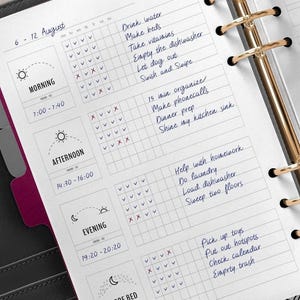 6 - 12 August
Drink water
Make beds
Take vitamins
Empty the dishwasher
Let dog out
Swish and Swipe
MORNING
7:00 - 7:40
15 min organize/
Make phonecalls
Dinner prep
Shine my kitchen sink
AFTERNOON
14:30 - 16:00
Help with homework
Do laundry
Load dishwasher
Sweep two floors
EVENING
19:20 - 20:20
Pick up toys
Put out hotspots
Check calendar
Emprty trash
RE BED